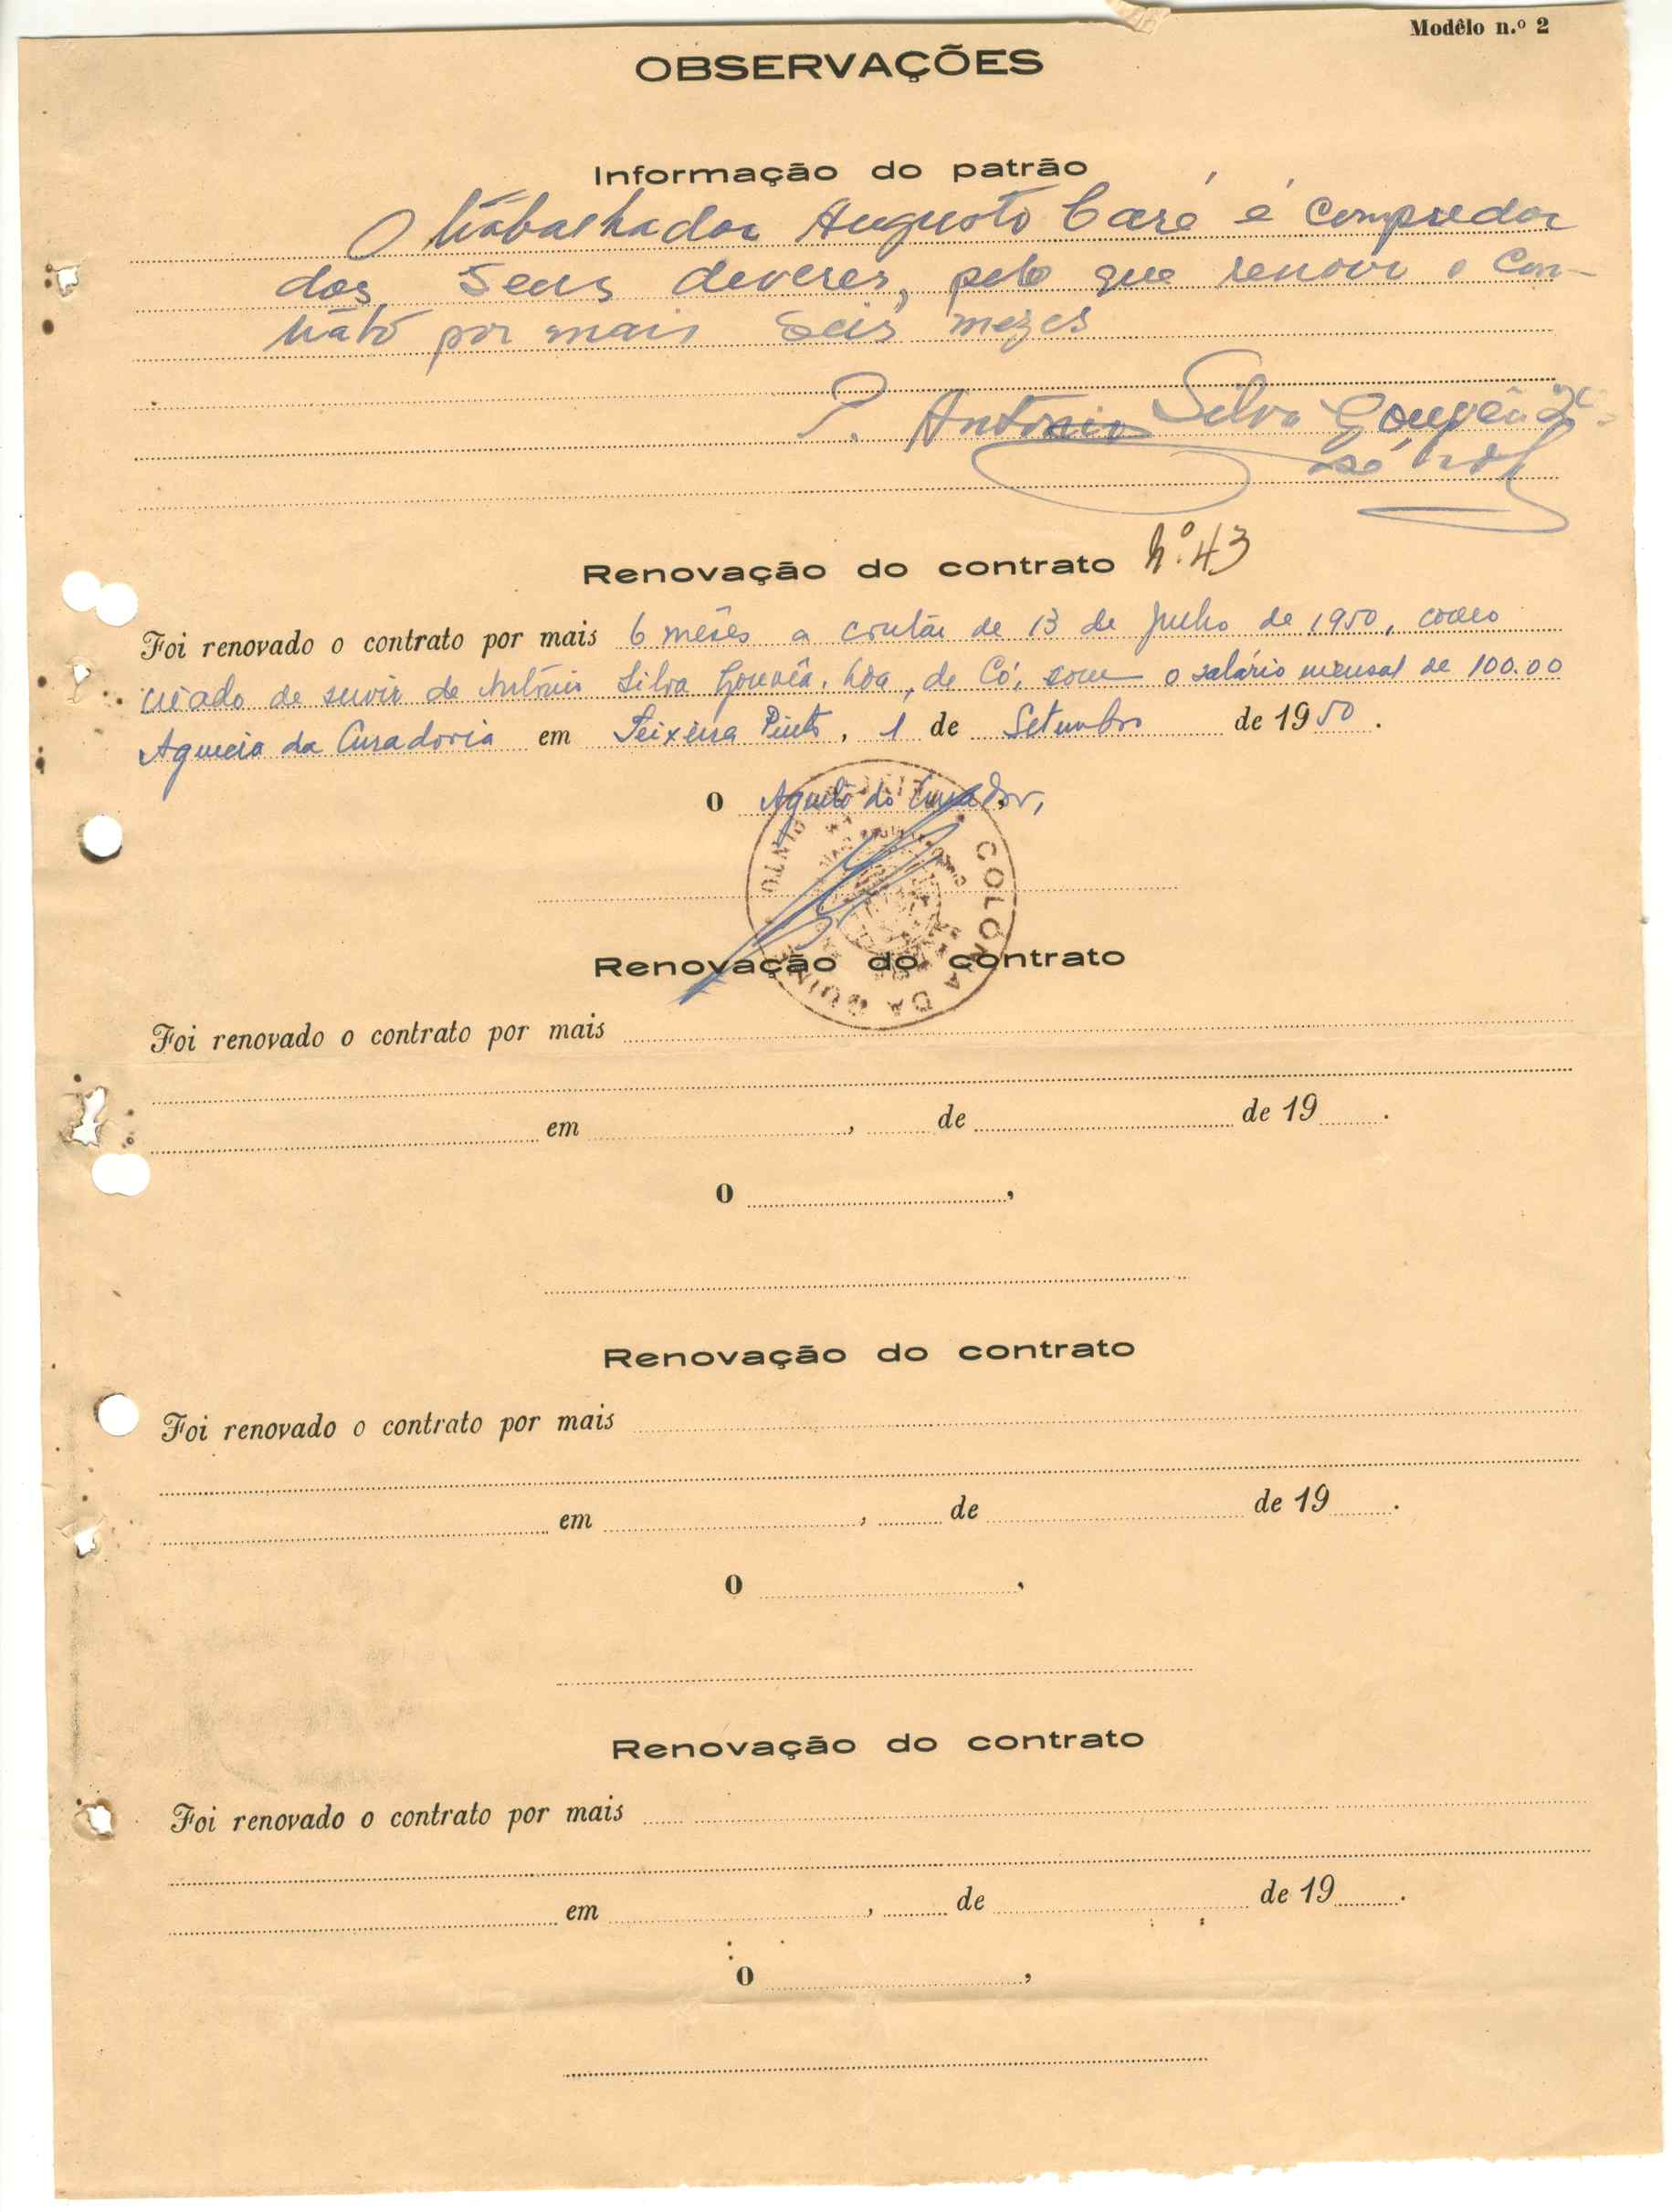 Modêlo n.º 2
OBSERVAÇÕES
Informação do patrão
O trabalhador Augusto Caré é compredor
dos seus deveres, pelo que renovo o con-
trato por mais seis mezes
P. António Silva Gouvêa
Renovação do contrato Nº 43
Foi renovado o contrato por mais 6 mêses a contar de 13 de Julho de 1950, como
criado de servir de António Silva Gouvêa, Lda, de Có, com o salário mensal de 100.00
Agencia da Curadoria em Teixeira Pinto, 1 de Setembro de 1950.
O Agente do Curador,
COLÓNIA DA GUINÉ
PINTO
Renovação do contrato
Foi renovado o contrato por mais
em , de de 19 .
O ,
Renovação do contrato
Foi renovado o contrato por mais
em , de de 19 .
O ,
Renovação do contrato
Foi renovado o contrato por mais
em , de de 19 .
O ,